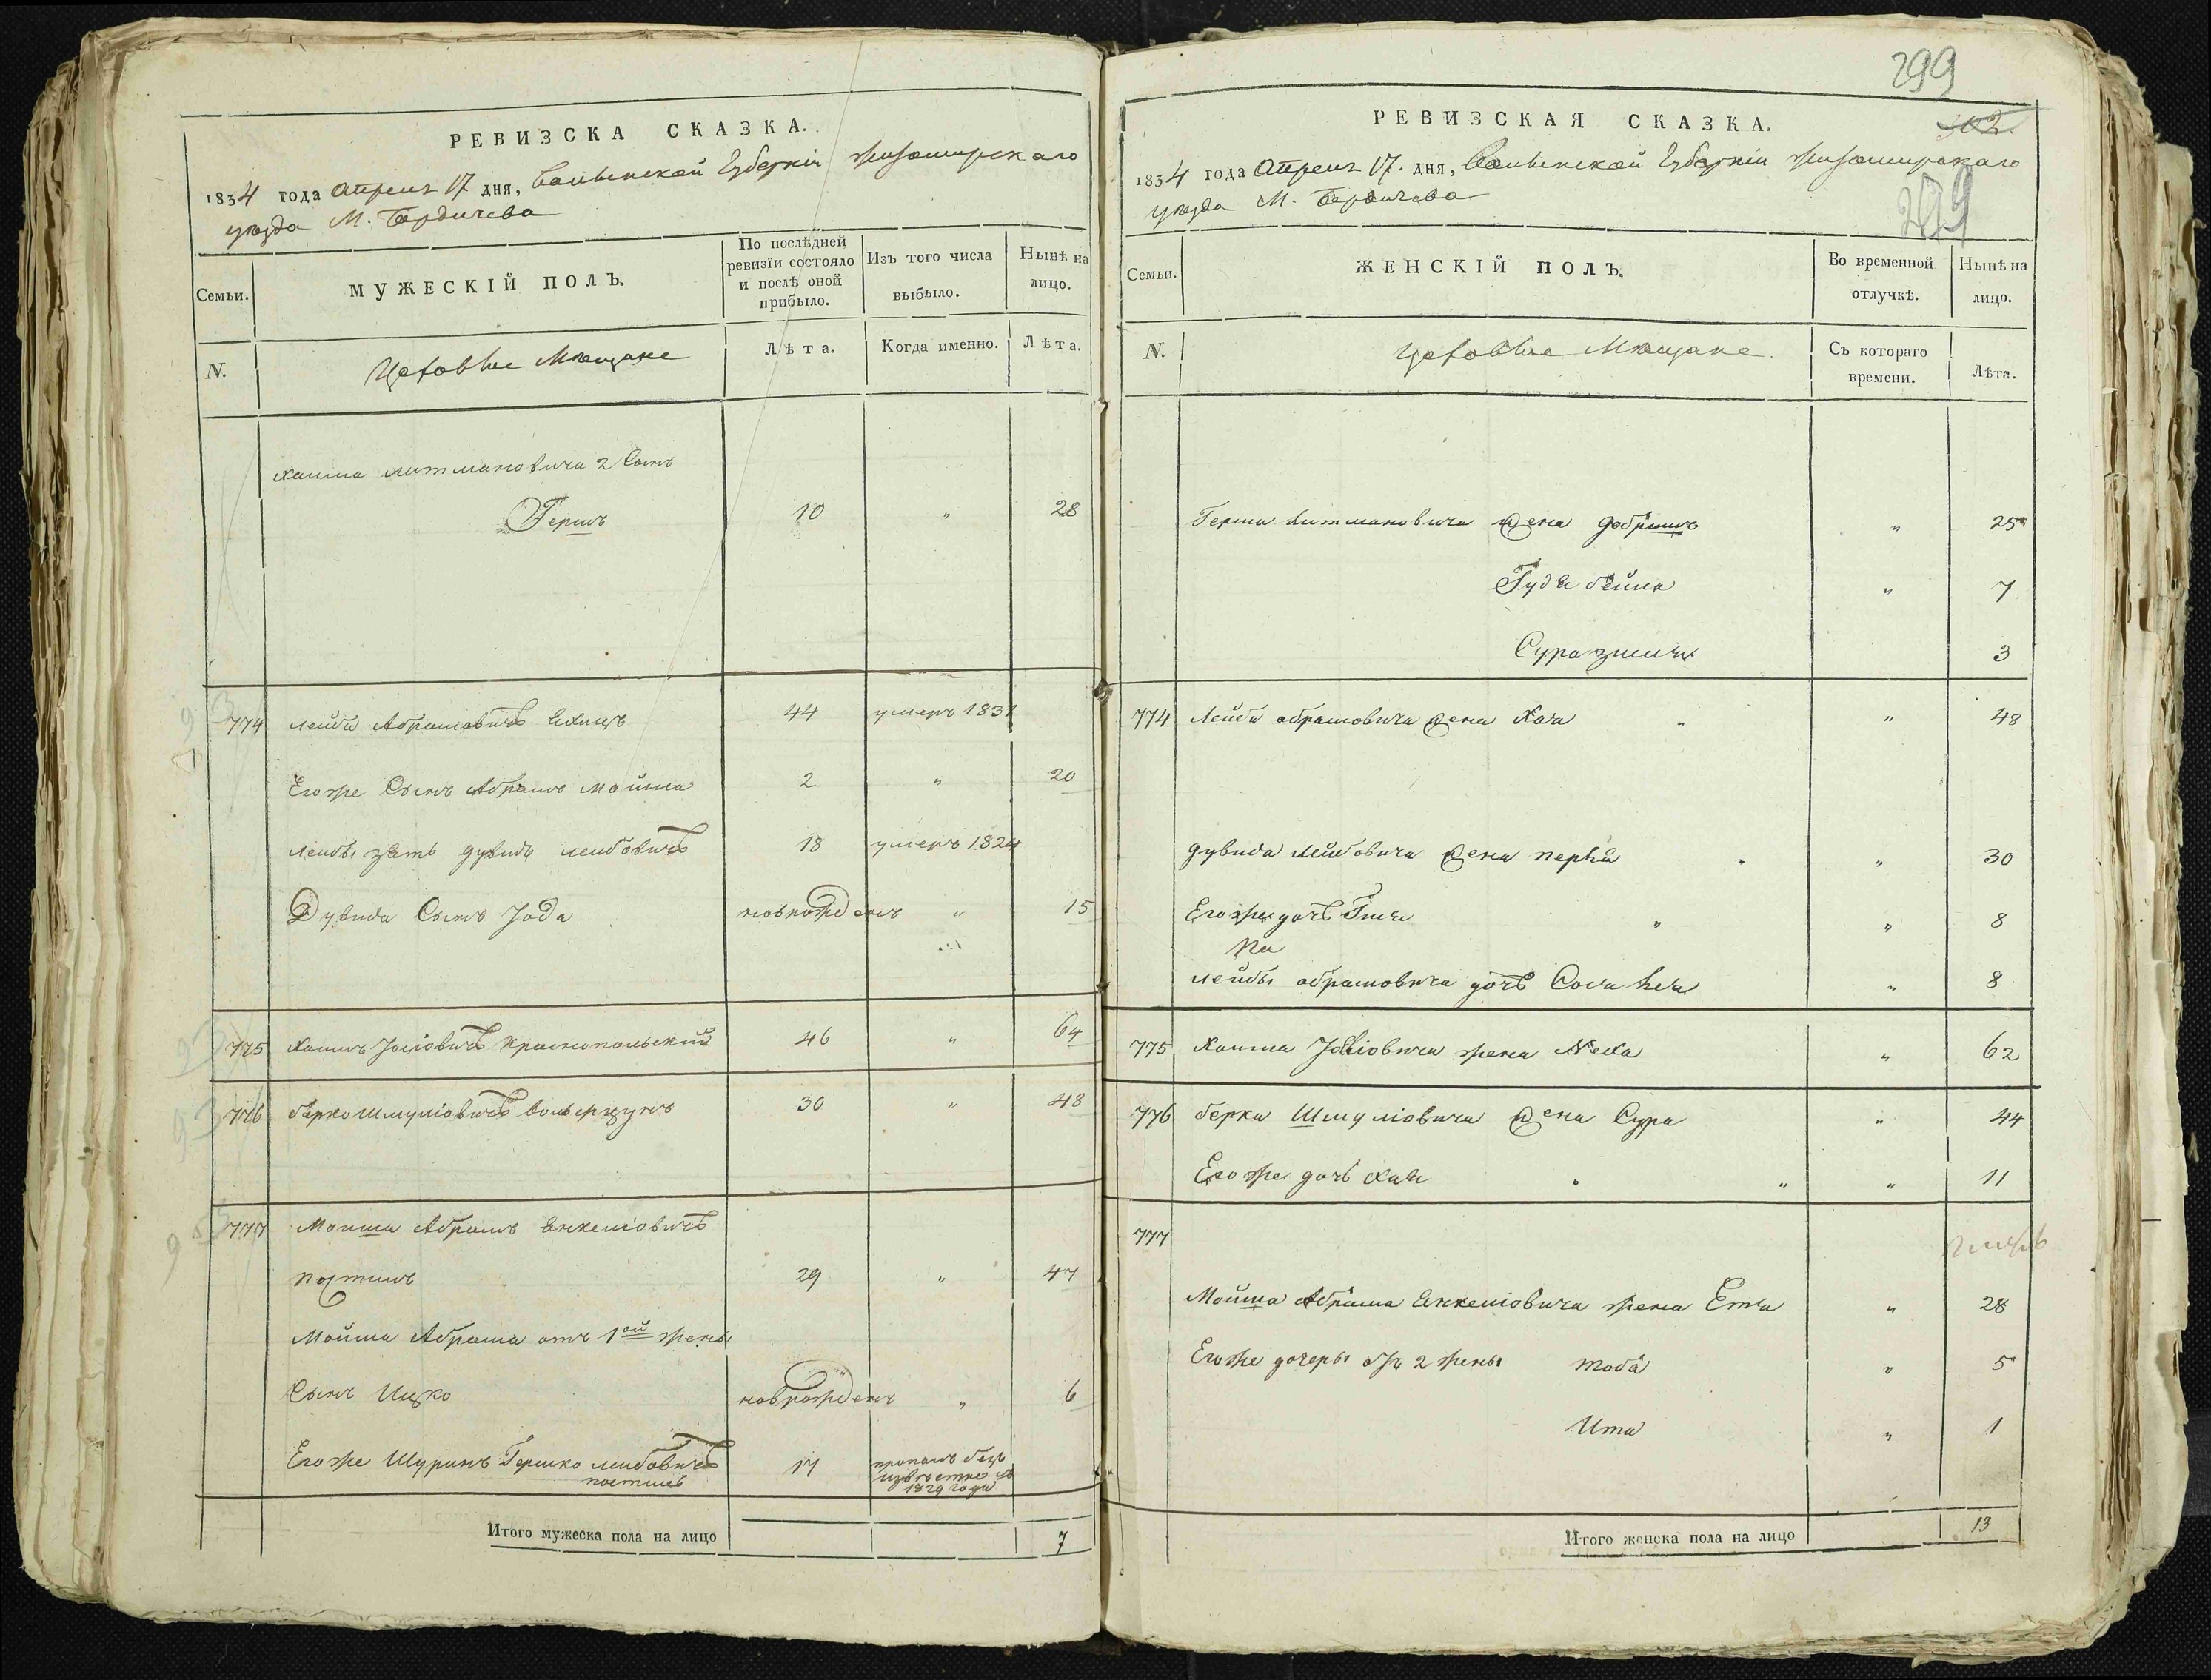 299
РЕВИЗСКА СКАЗКА.
1834 года Апреля 17 дня, Волынской Губернии Житомирскаго
уезда М. Бердичева
Семьи.
МУЖЕСКІЙ ПОЛЪ.
По послѣдней ревизіи состояло и послѣ оной прибыло.
Изъ того числа выбыло.
Нынѣ на лицо.
N.
Цеховые Мещане
Лѣта.
Когда именно.
Лѣта.
Хаима Литмановича 2 Сынъ
Гершъ 10 " 28
774 Лейба Абрамовичъ 44 умеръ 1831
Егоже Сынъ Абрамъ Мойша 2 " 20
Лейбы зять Дувидъ Лейбовичъ 18 умеръ 1824
Дувида Сынъ Іода новорожденъ " 15
775 Хаимъ Іосіовичъ Краснопольский 46 " 64
776 Берко Шмуліовичъ 30 " 48
777 Мойша Абрамъ Янкеліовичъ
29 " 47
Мойши Абрама отъ 1ой жены
Сынъ Ицко новорожденъ " 6
Егоже Шуринъ Гершко Лейбовичъ 17 пропалъ безъ
извѣстно съ
1829 года
Итого мужеска пола на лицо 7
РЕВИЗСКАЯ СКАЗКА.
302
1834 года Апреля 17. дня, Волынской Губерніи Житомирскаго
уезда М. Бердичева
299
Семьи.
ЖЕНСКІЙ ПОЛЪ.
Во временной отлучкѣ.
Нынѣ на лицо.
N.
Цеховые Мещане.
Съ котораго времени.
Лѣта.
Герша Литмановича жена Добришъ " 25
Гудя Бейла " 7
Сура 3
774 Лейбы Абрамовича жена Хая " " 48
Дувида Лейбовича жена Перля " " 30
Егоже дочь " " 8
Лейбы Абрамовича дочь " 8
775 Хаима Іосіовича жена Неха " 62
776 Берка Шмуліовича жена Сура " 44
Егоже дочь Хая " " " 11
777
Мойша Абрама Янкеліовича жена Етя " 28
Егоже дочеры отъ 2 жены Тоба " 5
Ита " 1
Итого женска пола на лицо 13